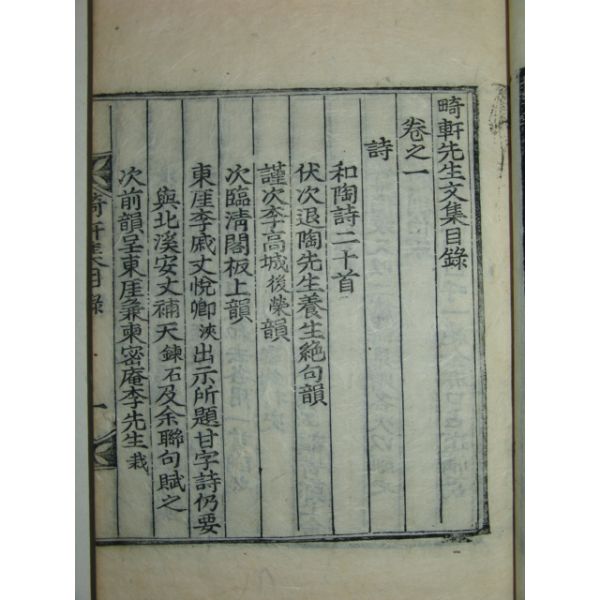 畸軒先生文集目錄
卷之一
詩
和陶詩二十首
伏次退陶先生養生絶句韻
謹次李高城後榮韻
次臨淸閣板上韻
東厓李戚丈悅卿浹出示所題甘字詩仍要
與北溪安丈補天鍊石及余聯句賦之
次前韻呈東厓兼柬密庵李先生栽
畸軒集目錄
一